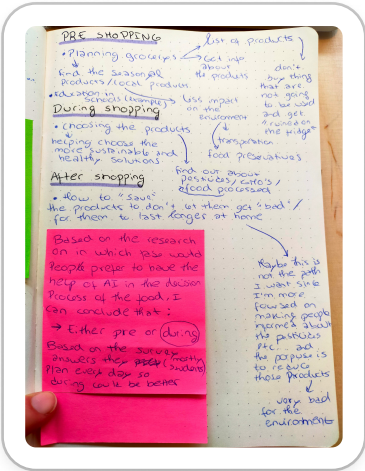 PRE SHOPPING
list of products
• Planning groceries
Get info
about
the products
find the seasonal
products/local products
• education in
schools (examples)
don't
buy thing
that are
not going
to be used
and get
ruined on
the fridge
less impact
on the
environment
During shopping
• choosing the products
transportation
helping choose the
more sustainable and
healthy solutions
food preservatives
find out about
pesticides/
food processed
After shopping
• How to "save"
the products to don't let them get "bad"/
for them to last longer at home
Based on the research
on in which fase would
People prefer to have the
help of AI in the decision
Process of the food, I
can conclude that:
→ Either pre or during
Based on the survey
answers they (mostly
students)
Plan every day so
during could be better
Maybe this is
not the path
I want since
I'm more
focused on
making people
informed about
the pesticides
etc... and
the purpose is
to reduce
those products
very bad
for the
environment